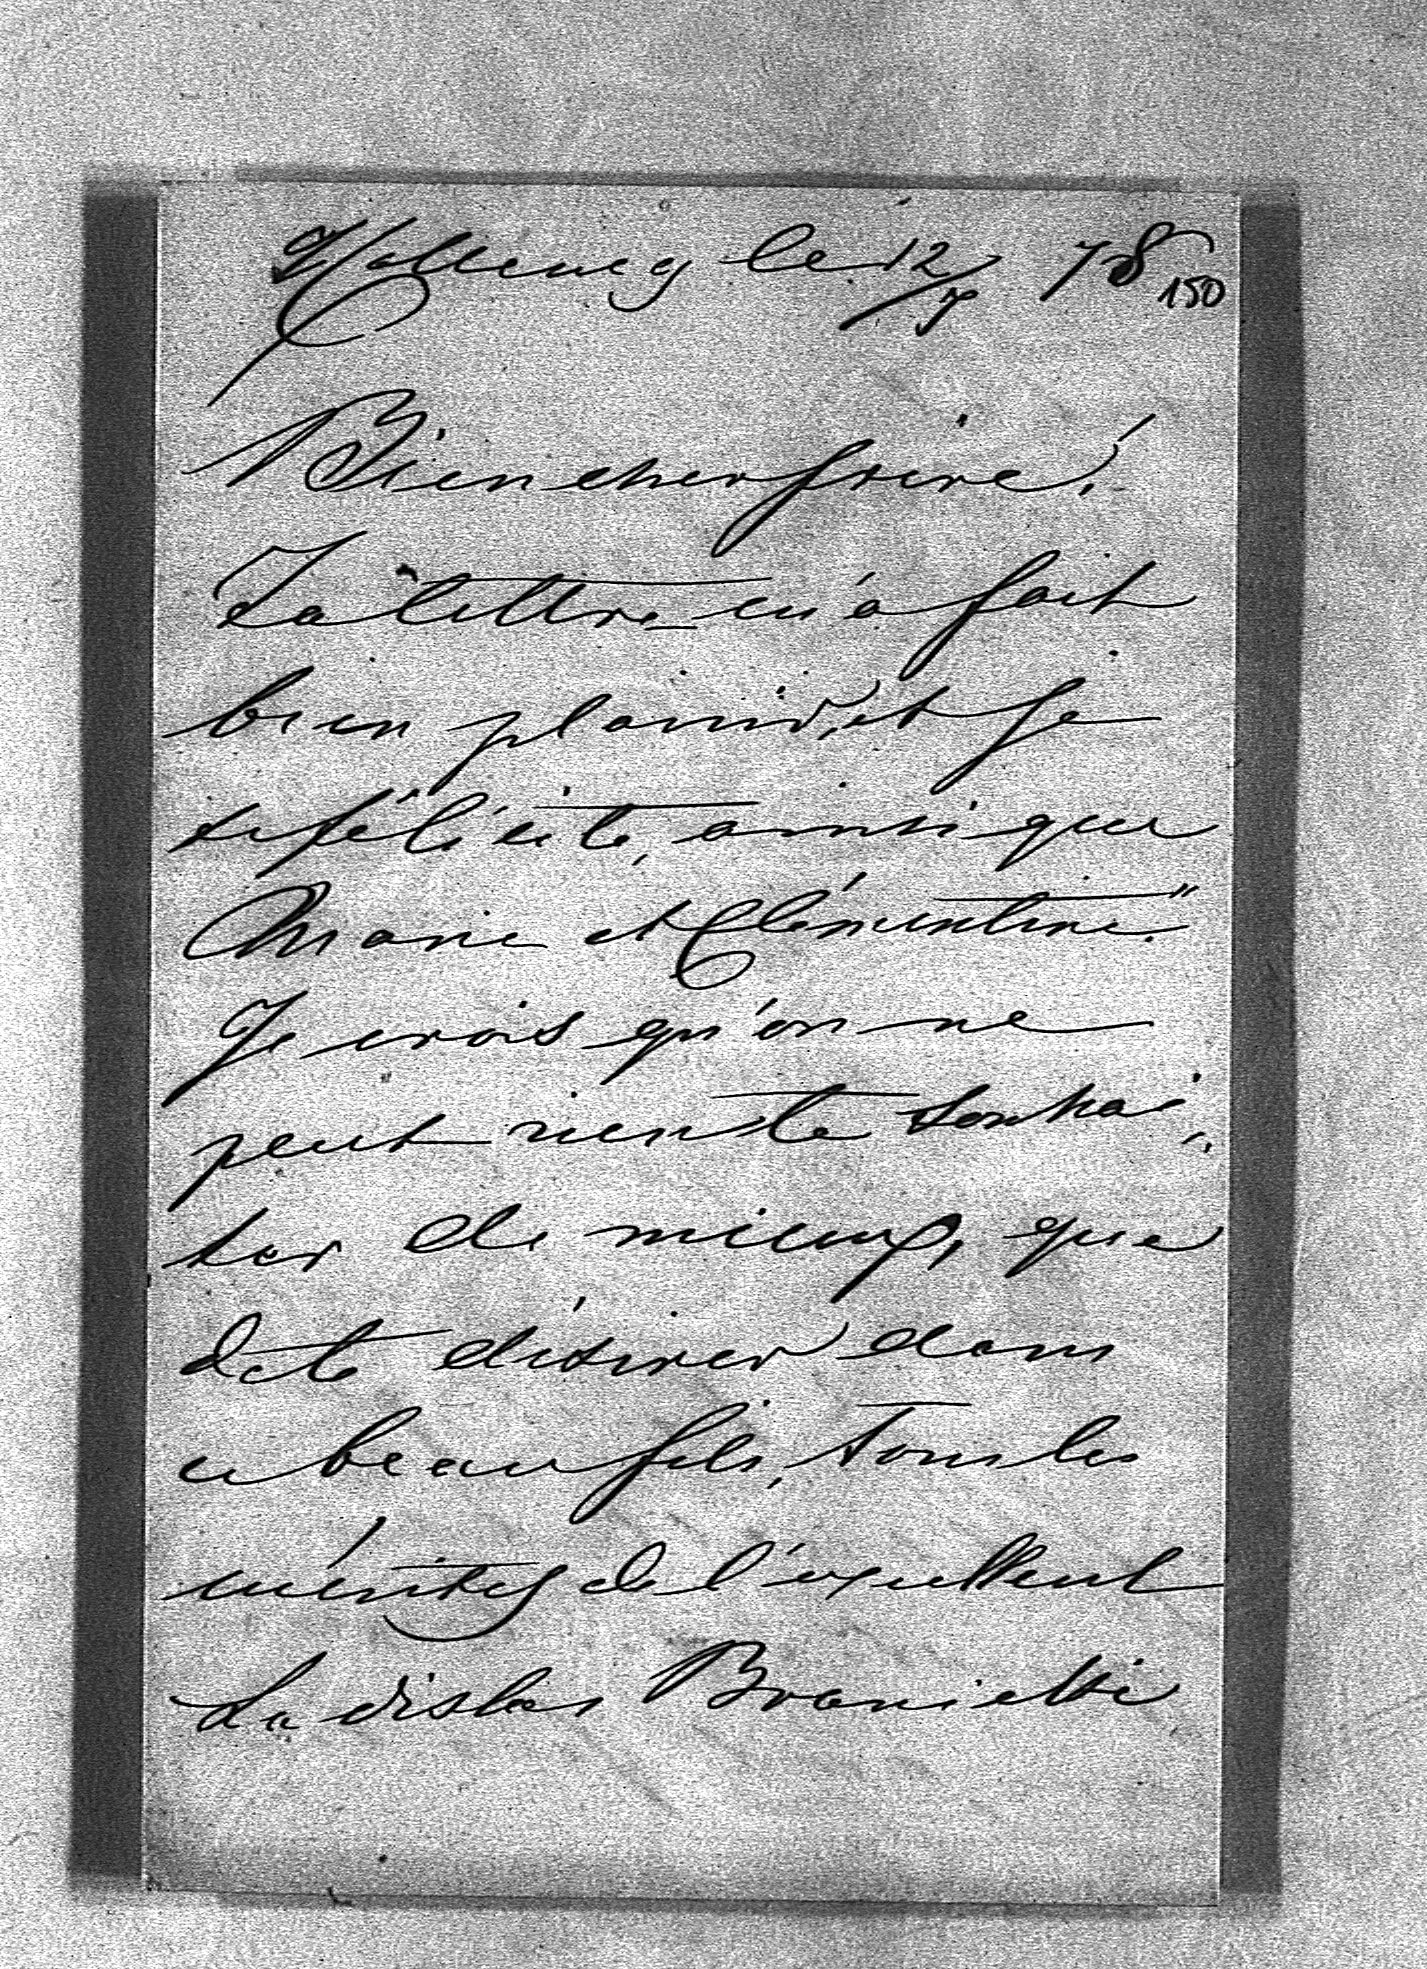 Hollenegg le 12/7 78
150
Bien cher frère!
Ta lettre m'a fait
bien plaisir, et je
te félicite, ainsi que
Marie et Clémentine."
Je crois qu'on ne
peut rien te souhai„
ter de mieux, que
de te désirer dans
ce beau fils, tous les
mérites de l'excellent
Ladislas Branicki